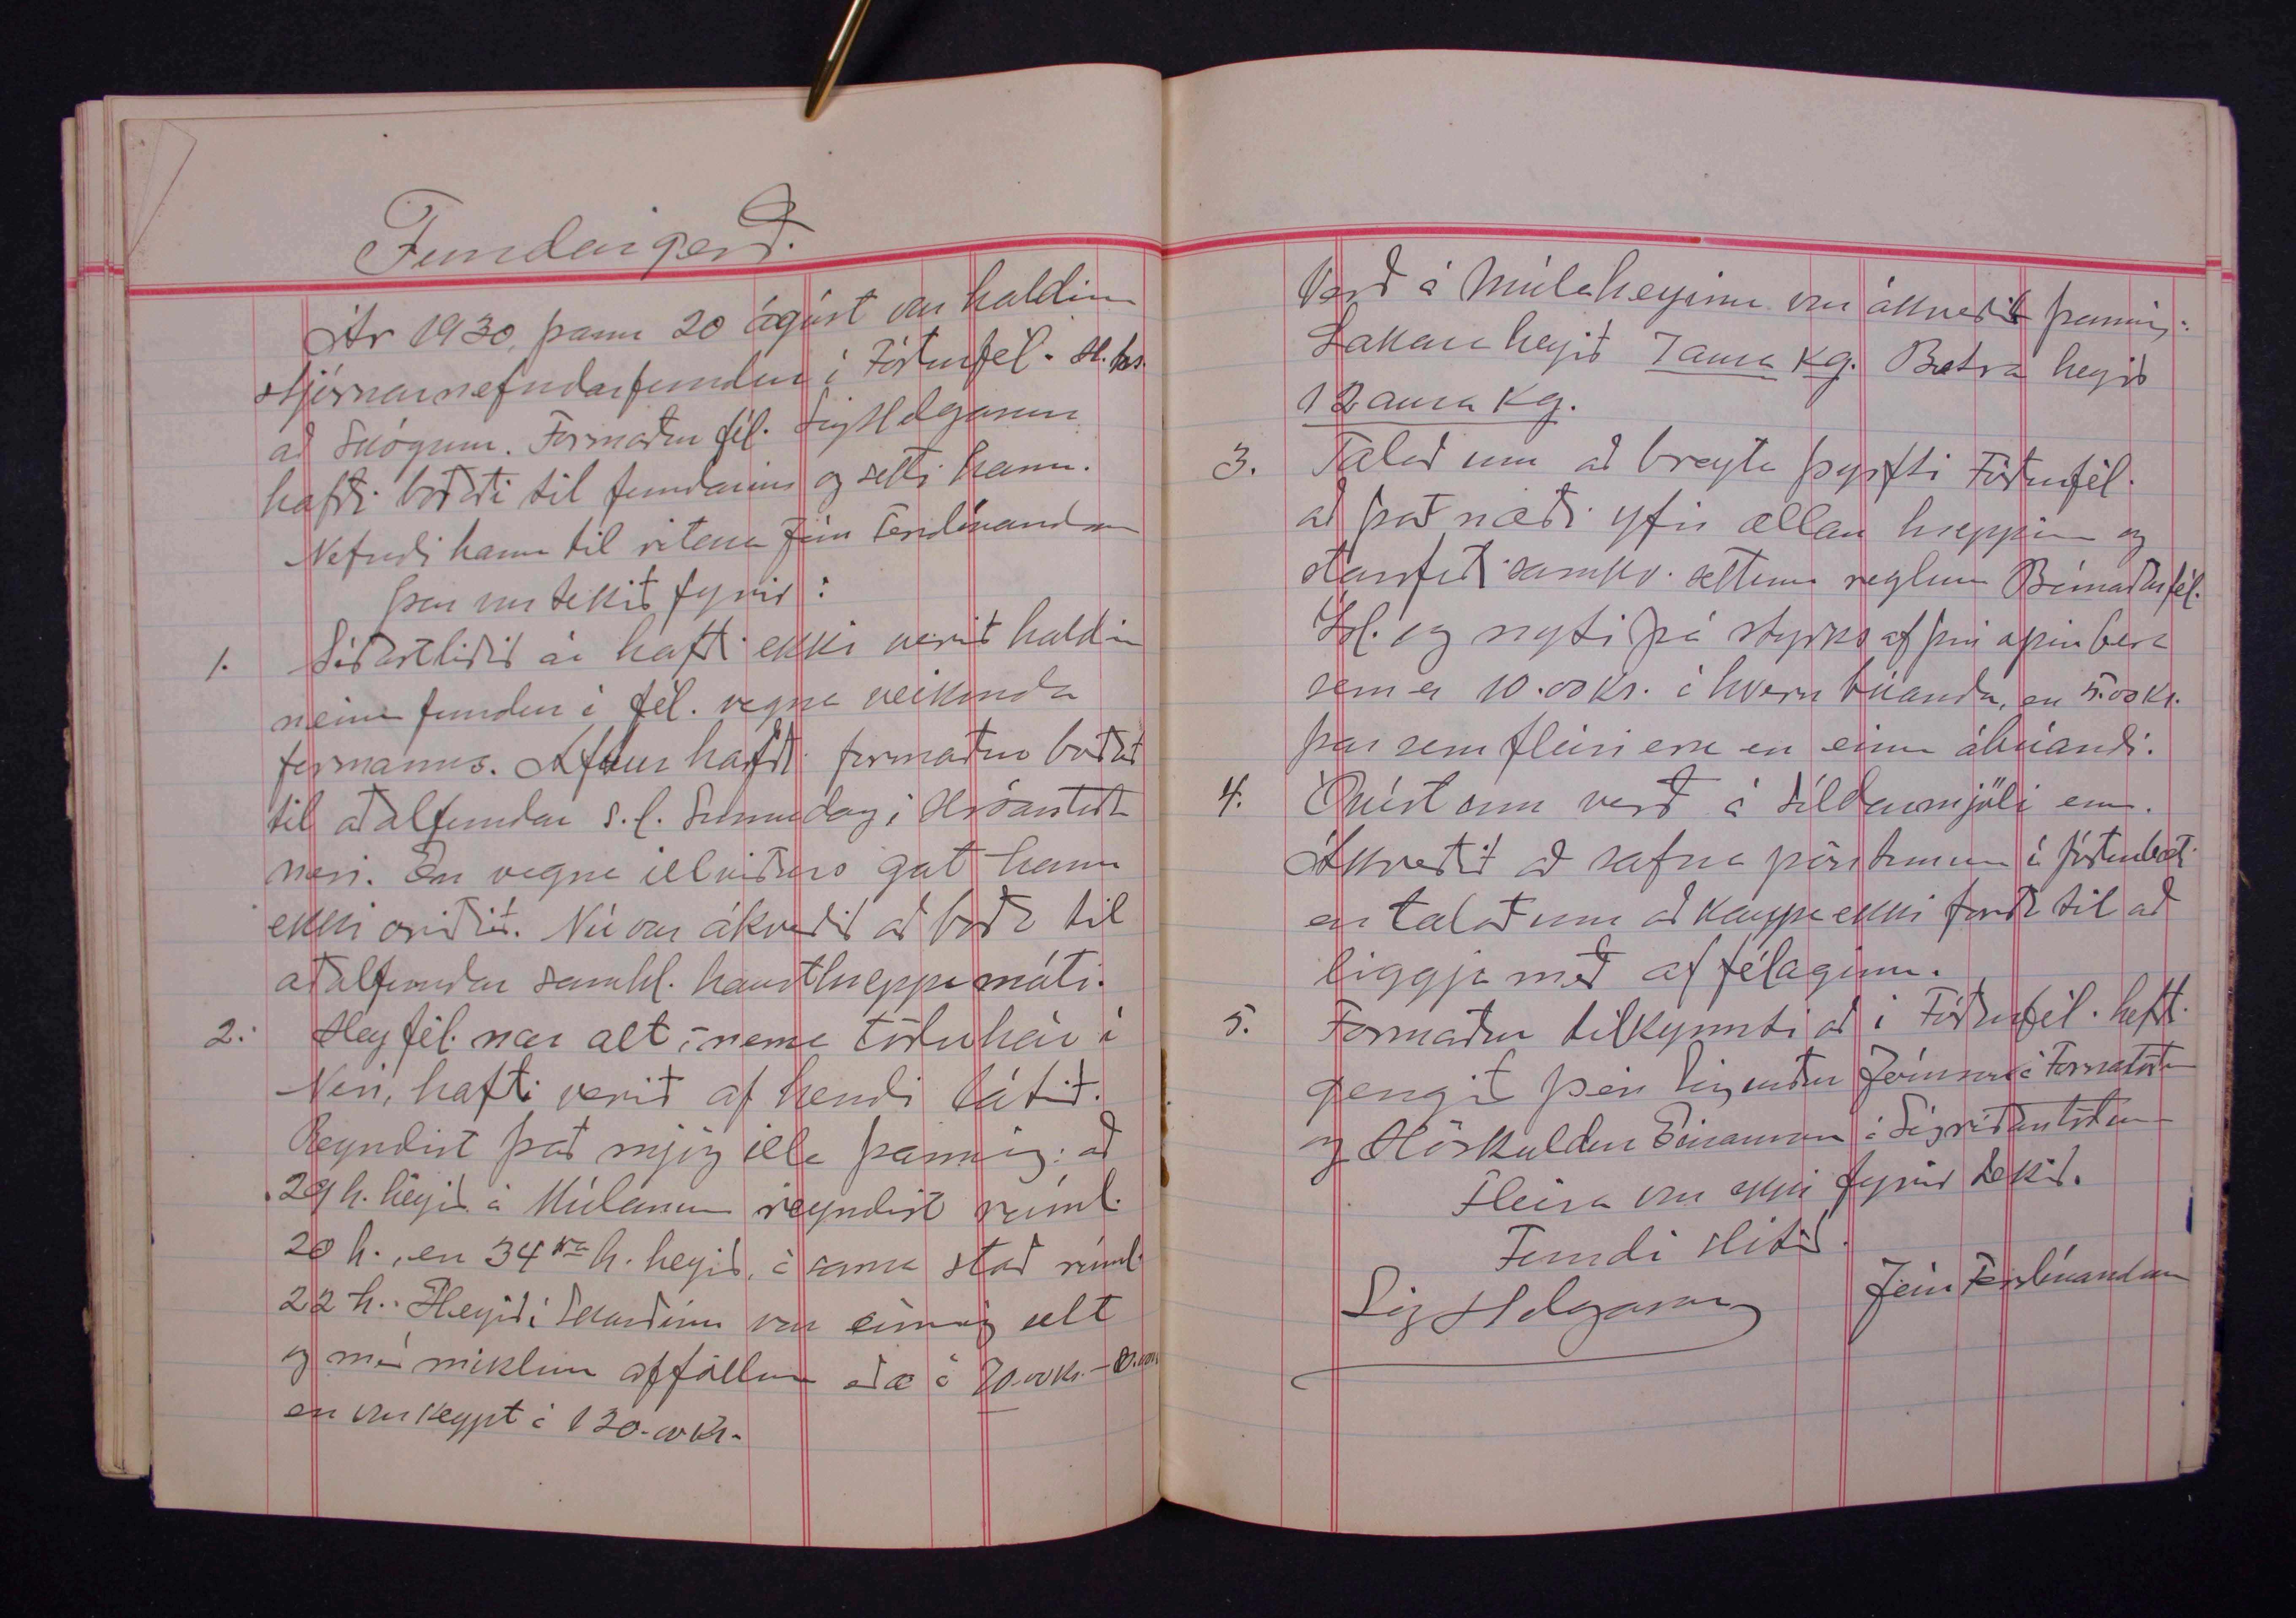 Fundargerð.
Ár 1930, þann 20 ágúst var haldinn
stjórnarnefndarfundur í Fóðurfél. Sk.hr.
að Skógum. Formaður fél. Sig Helgason
hafði boðað til fundarins og setti hann.
Nefndi hann til ritara Jón Ferdínandsson
Þar var tekið fyrir:
1. Síðastliðið ár hafði ekki verið haldin
neinn fundur í fél. vegna veikinda
formanns. Aftur hafði formaður boðað
til aðalfundar s.l. Sunnudag í Hróarstúns
neri. En vegna illviðurs gat hann
ekki orðið. Nú var ákveðið að boða til
aðalfundar samhl. hausthreppamóti.
2. Hey fél. var alt, nema töðuhár í
Neri, hafði verið af hendi látið.
Reyndist það mjög illa þannig: að
29 h. heyið á Múlanum reyndist rúml.
20 h., en 34ra h. heyið, á sama stað rúml.
22 h.. Heyið í Skarðinu var einnig selt
og með miklum afföllum eða á 70.00 kr.
en var keypt á 120.00 kr.
Verð á Múlaheyinu var ákveðið þannig:
Lakara heyið 7 aura Kg. Betra heyið
12 aura Kg.
3. Talað um að breyta þyrfti Fóðurfél.
að það næði yfir allan hreppinn og
starfaði samkv. settum reglum Búnaðarfél.
Ísl. og nyti þá styrks af því opinbera
sem er 10.00 kr. á hvern búanda, en 5.00 kr.
þar sem fleiri eru en einn ábúandi.
4. Óvíst um verð á síldarmjöli enn.
Ákveðið að safna pöntunum í fóðurbæti
en talað um að kaupa ekki forða til að
liggja með af félaginu.
5. Formaður tilkynnti að í Fóðurfél. hefði
gengið þeir Sigurður Jónsson á
og Höskuldur Einarsson á Sigríðarstöðum
Fleira var ekki fyrir tekið.
Fundi slitið.
Sig Helgason Jón Ferdínandsson